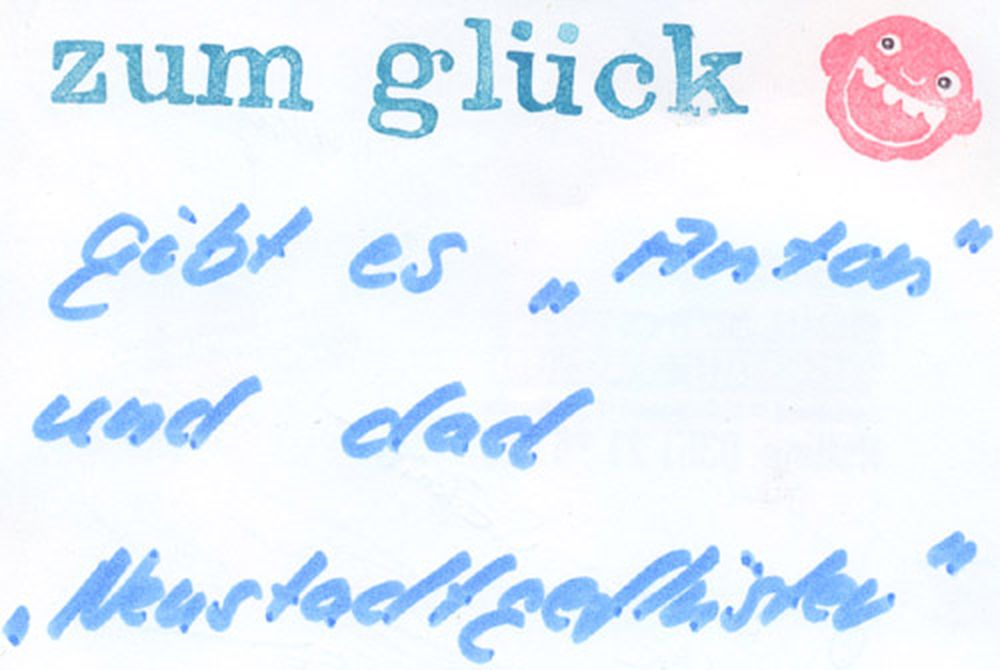 zum glück
gibt es „Anton"
und dad
„Neustadtgeflüster"